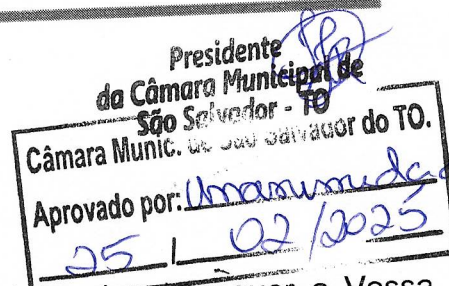 Presidente
da Câmara Municipal de
São Salvador - TO
Câmara Munic. de São Salvador do TO.
Aprovado por: Unanimidade
25 / 02 / 2025
a Vossa